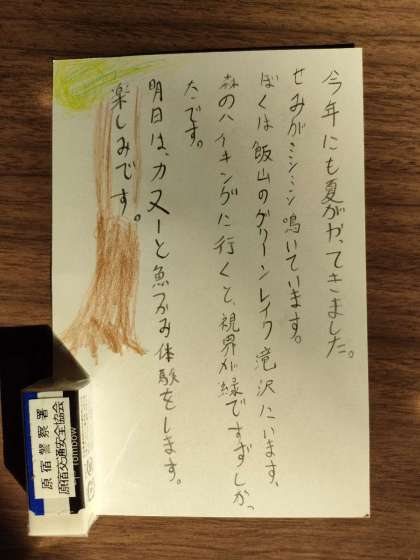 今年にも夏がやってきました。
せみがミンミン鳴いています。
ぼくは飯山のグリーンレイク滝沢にいます、
森のハイキングに行くと、視界が緑ですずしかっ
たです。
明日は、カヌーと魚つかみ体験をします。
楽しみです。
原宿警察署
原宿交通安全協会
Tombow